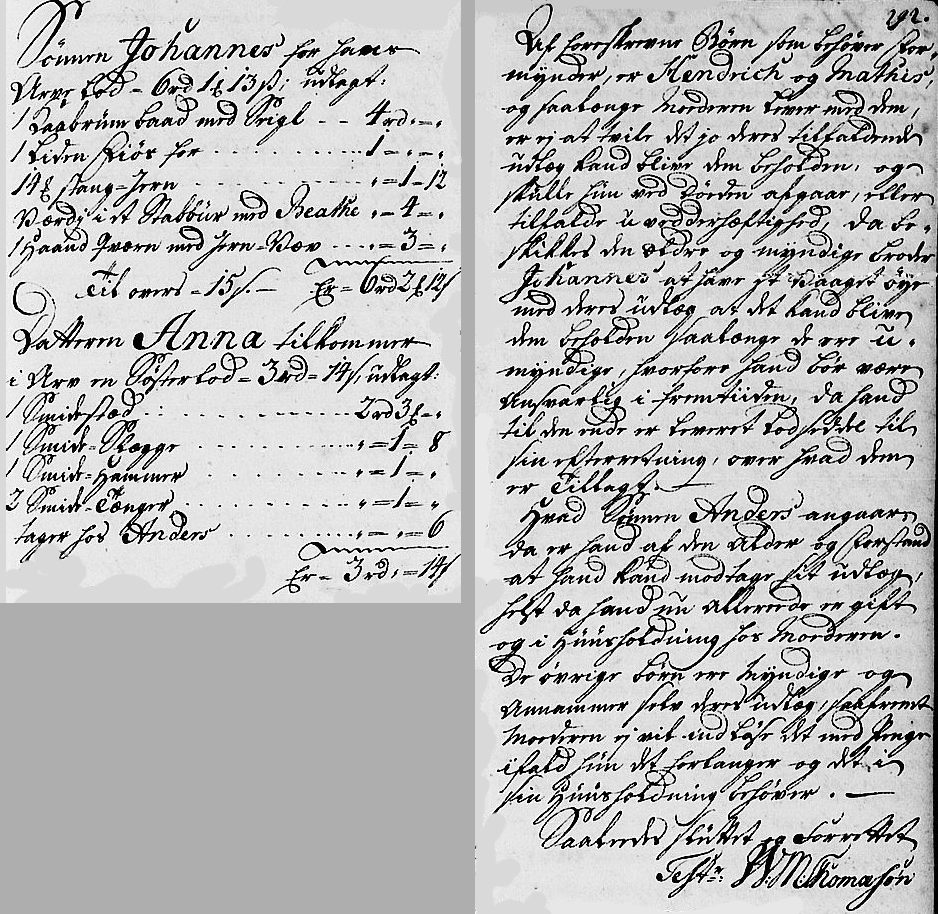 Sönnen Johannes for hans
Arve Lod = 6rd 1 13 s; udlagt:
1 Baad med Seigl -- 4rd = „
1 liden for ---- 1 = „ = „
14 stang-Jern ---- „ = 1 = 12
Værdj i et Stabbúr med Beathe „ = 4 = „
1 Haand Qværn med Jern ---- „ = 3 = „
Til overs = 15 s. — Er = 6rd 2 12 s
Datteren Anna tilkommer
i Arv en Söster lod = 3rd = 14 s, udlagt:
1 Smidestæd ---- 2rd 3 = „
1 Smide-Slægge ---- „ = 1 = 8
1 Smide-Hammer ---- „ = 1 = „
2 Smide-Tænger ---- „ = 1 = „
tager hos Anders ---- „ = „ = 6
Er = 3rd „ = 14 s
292.
Af foreskrevne Börn som behöver For-
mynder, er Hendrich og Mathis,
og saalænge Moderen lever med dem,
er ej at tvile det jo deres tilfaldende
udlæg kand blive dem beholden, og
skulle hún ved Döden afgaar, eller
tilfalde uvedderhæftighed, da be-
skikkes den ældre og myndige broder
Johannes at have et Vaaget öye
med deres udlæg at det kand blive
dem beholden saalænge de ere u-
myndige, hvorfore hand bör være
Ansvarlig i fremtiiden, da hand
til den ende er leveret lodseddel til
sin efterretning, over hvad dem
er Tillagt. —
Hvad Sönnen Anders angaar
da er hand af den alder og forstand
at hand kand modtage sit udlæg,
helst da hand nu allerede er gift
og i Húúsholdning hos Moderen.
De övrige börn ere Myndige og
Annammer selv deres udlæg, saafremt
Moderen ej vil indlöse det med Penge
ifald hún det forlanger og det i
sin Húúsholdning behöver. —
Saaledes sluttet og Forrettet
Test: W: M: Thomasön